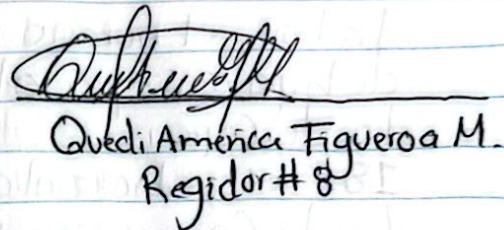 Quedi América Figueroa M.
Regidor # 8